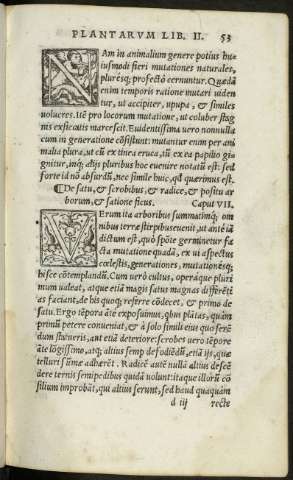 PLANTARVM LIB. II. 53
NAm in animalium genere potius hu=
iusmodi fieri mutationes naturales,
pluresq; profectò cernuntur. Quædã
enim temporis ratione mutari viden
tur, ut accipiter, upupa, & similes
volucres. Itẽ pro locorum mutatione, ut coluber stag
nis exsiccatis marcescit. Euidentissima uero nonnulla
cum in generatione cõsistunt: mutantur enim per ani
malia plura, ut cũ ex tinea eruca, tũ ex ea papilio gi
gnitur, imq; alijs pluribus hoc euenire notatũ est. sed
forte id nõ absurdũ, nec simile huic, qd quærimus est.
¶ De satu, & scrobibus, & radice, & positu ar
borum, & satione ficus. Caput VII.
VErum ita arboribus summatimq; om
nibus terræ stirpibus euenit, ut ante iã
dictum est, quò spõte germinetur fa
cta mutatione quadã, ex ui aspectus
cœlestis, generationes, mutationésq;
hisce cõtemplandũ. Cum uerò cultus, operáque pluri
mum ualeat, atque etiã magis satus magnas differẽti
as faciant, de his quoq; referre cõdecet, & primo de
satu. Ergo tẽpora ãte exposuimus, qbus plãtas, quàm
primũ petere conueniat, & à solo simili eius quo serẽ
dum statueris, aut etiã deteriore: scrobes uero tẽpore
ãte lõgissimo, atq; altius semp defodiẽdũ, etiã ijs, quæ
telluri summæ adherẽt. Radicẽ autẽ nullã altius descẽ
dere ternis semipedibus quidã volunt: itaque illorũ cõ
silium improbãt, qui altius serunt, sed haud quaquàm
d iij recte